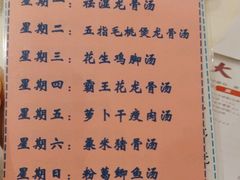 星期一：祛湿龙骨汤
星期二：五指毛桃煲龙骨汤
星期三：花生鸡脚汤
星期四：霸王花龙骨汤
星期五：萝卜干瘦肉汤
星期六：粟米猪骨汤
星期日：粉葛鲫鱼汤